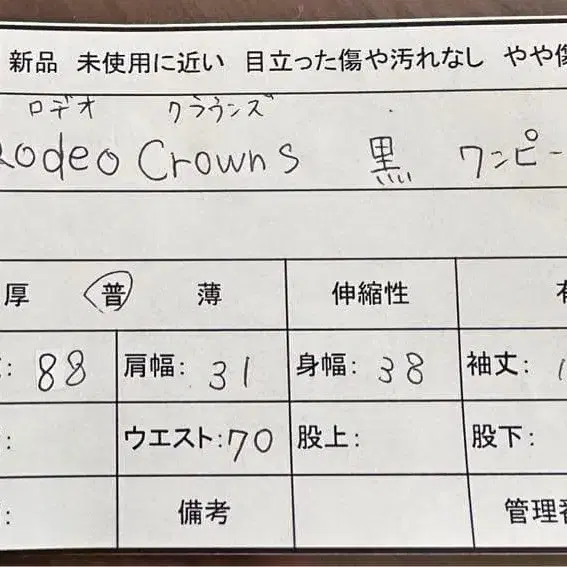 新品 未使用に近い 目立った傷や汚れなし やや傷
ロデオ クラウンズ
Rodeo Crowns 黒 ワンピー
厚 普 薄 伸縮性 有
: 88 肩幅: 31 身幅: 38 袖丈: 1
: ウエスト: 70 股上: 股下:
: 備考 管理番